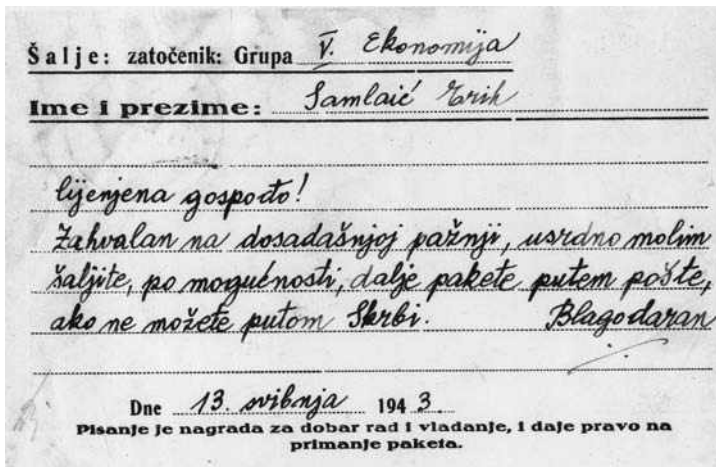 Šalje: zatočenik: Grupa V. Ekonomija
Ime i prezime: Samlaić Erih
Cijenjena gospođo!
Zahvalan na dosadašnjoj pažnji, usrdno molim
šaljite, po mogućnosti, dalje pakete putem pošte,
ako ne možete putom Skrbi. Blagodaran
Dne 13. svibnja 1943.
Pisanje je nagrada za dobar rad i vladanje, i daje pravo na
primanje paketa.